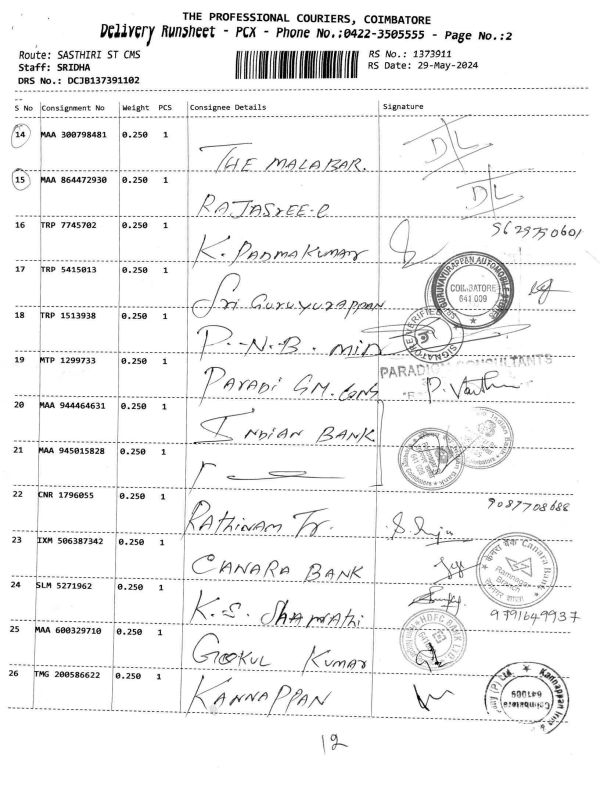 THE PROFESSIONAL COURIERS, COIMBATORE
Delivery Runsheet - PCX - Phone No.:0422-3505555 - Page No.:2
Route: SASTHIRI ST CMS
Staff: SRIDHA
DRS No.: DCJB137391102
RS No.: 1373911
RS Date: 29-May-2024
S No Consignment No Weight PCS Consignee Details Signature
14 MAA 300798481 0.250 1 THE MALABAR. D/L
15 MAA 864472930 0.250 1 RAJASREE-e D/L
16 TRP 7745702 0.250 1 K. PADMAKUMAR 9629750601
17 TRP 5415013 0.250 1 Sri Guruyurappan
GURUVAYURAPPAN AUTOMOBILE
COIMBATORE
641 009
18 TRP 1513938 0.250 1 P.-N.B. Min
SIGNATURE VERIFIED
19 MTP 1299733 0.250 1 Paradi GM. Cons
CONSULTANTS
20 MAA 944464631 0.250 1 INDIAN BANK
21 MAA 945015828 0.250 1
22 CNR 1796055 0.250 1 Rathinam Tr. 9087708688
23 IXM 506387342 0.250 1 CANARA BANK
केनरा बैंक Canara Bank
24 SLM 5271962 0.250 1 K.S. Shamathi 9791649937
25 MAA 600329710 0.250 1 Gokul Kumar
HDFC BANK LTD
26 TMG 200586622 0.250 1 KANNAPPAN
Kannappan Iron
Coimbatore
641009
12